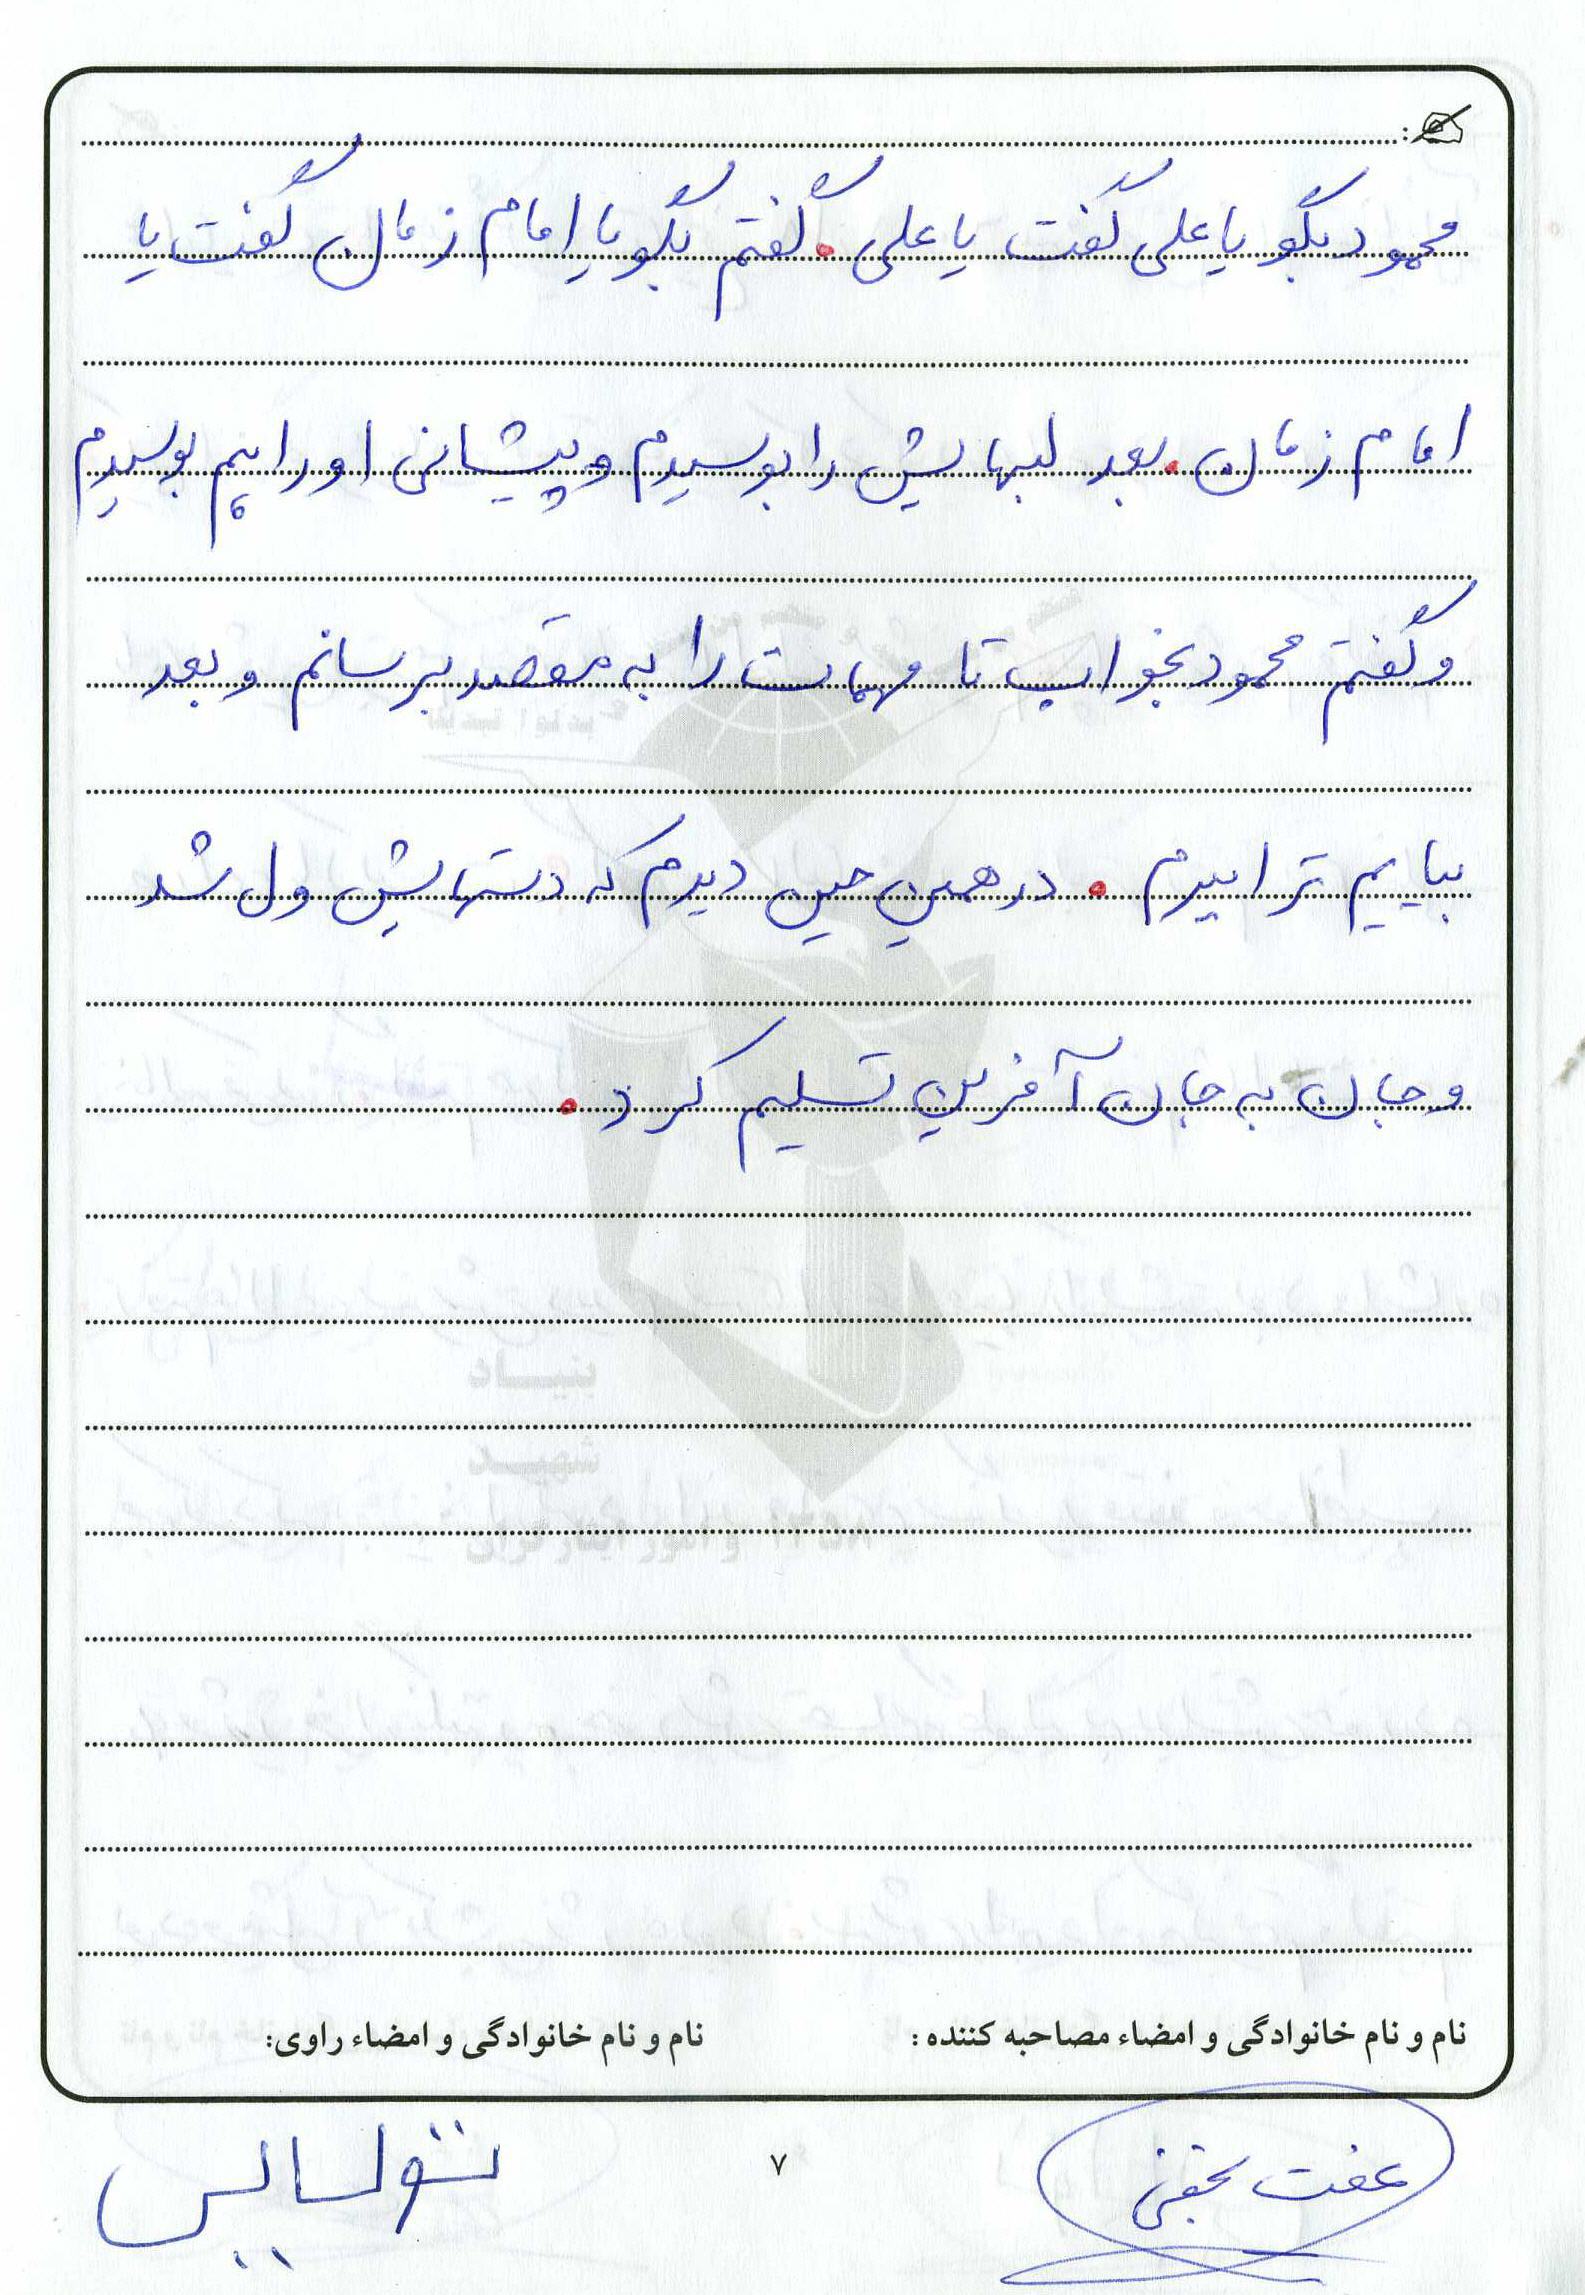 محمود بگو یا علی گفت یا علی . گفتم بگو یا امام زمان گفت یا
امام زمان . بعد لبهایش را بوسیدم و پیشانی او را هم بوسیدم
و گفتم محمود بخواب تا مهمات را به مقصد برسانم و بعد
بیایم ترا ببرم . در همین حین دیدم که دستهایش ول شد
و جان به جان آفرین تسلیم کرد .
بنیاد
شهید
و امور ایثارگران ۱۳۵۸
نام و نام خانوادگی و امضاء مصاحبه کننده : نام و نام خانوادگی و امضاء راوی:
عفت نجفی
۷